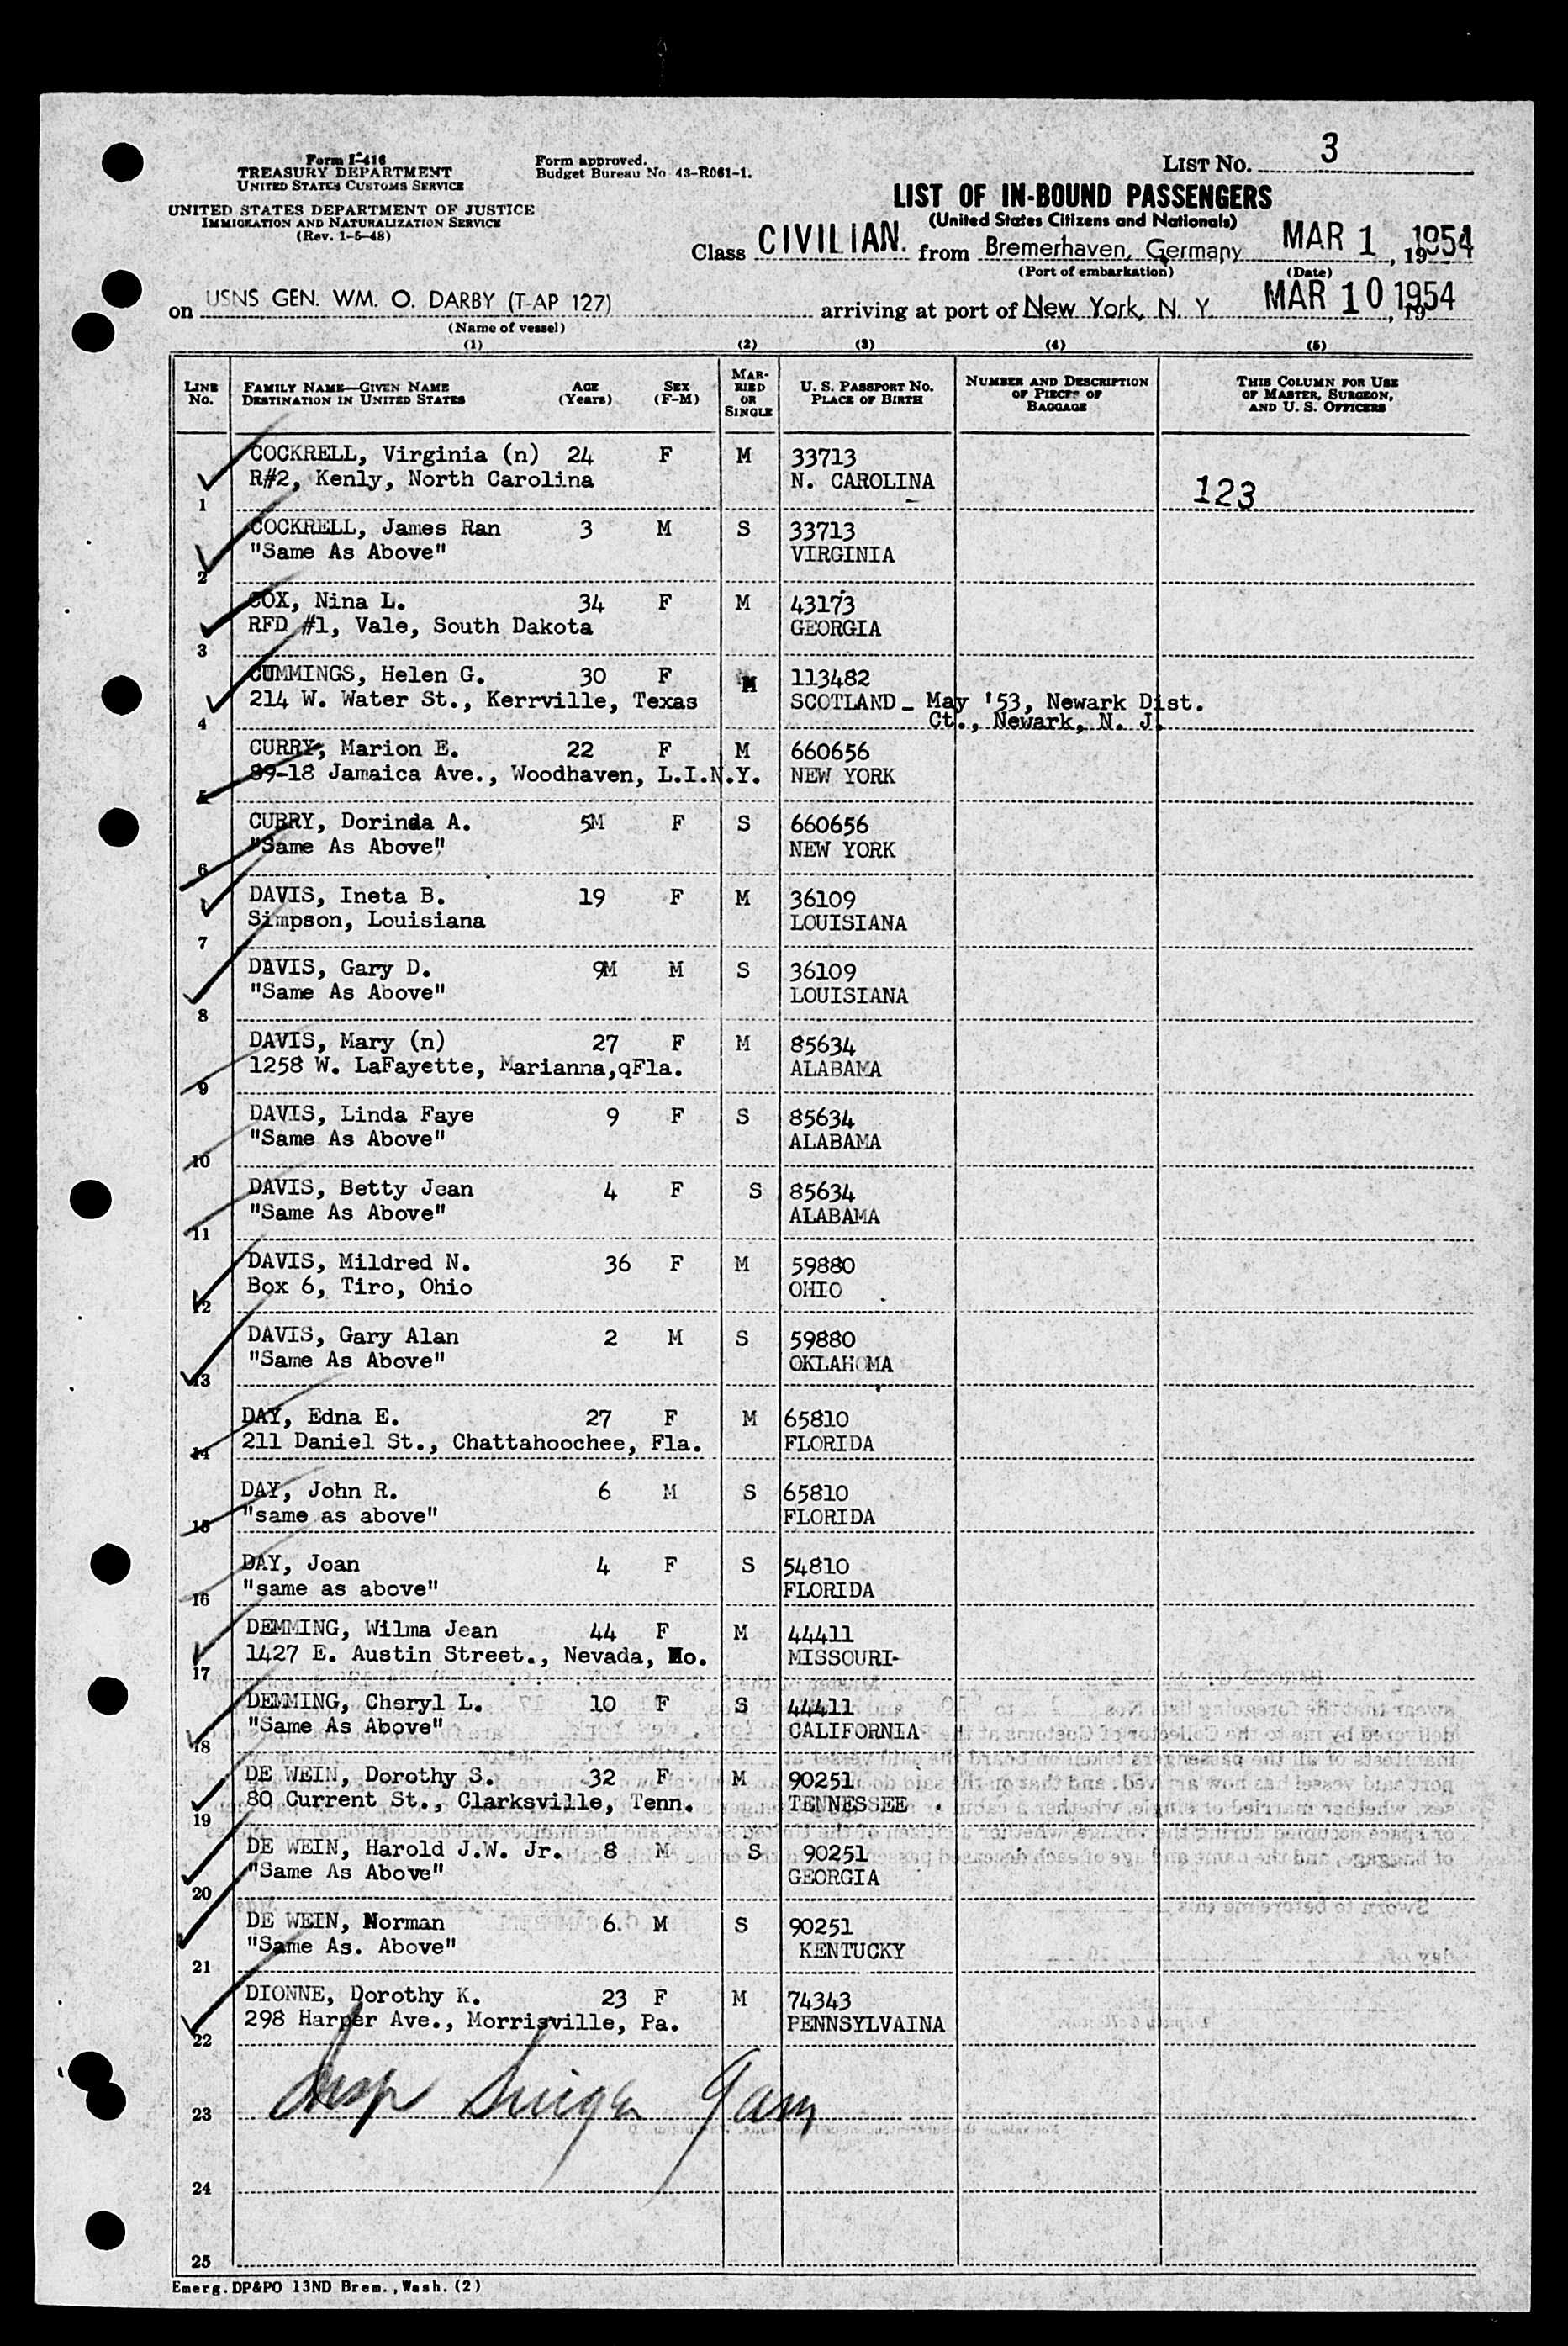 Form I-416
TREASURY DEPARTMENT
UNITED STATES CUSTOMS SERVICE
UNITED STATES DEPARTMENT OF JUSTICE
IMMIGRATION AND NATURALIZATION SERVICE
(Rev. 1-5-48)
Form approved.
Budget Bureau No. 43-R061-1.
LIST NO. 3
LIST OF IN-BOUND PASSENGERS
(United States Citizens and Nationals)
Class CIVILIAN. from Bremerhaven, Germany MAR 1, 1954
(Port of embarkation) (Date)
on USNS GEN. WM. O. DARBY (T-AP 127) arriving at port of New York, N. Y. MAR 10, 1954
(Name of vessel)
(1) (2) (3) (4) (5)
LINE No. FAMILY NAME—GIVEN NAME DESTINATION IN UNITED STATES AGE (Years) SEX (F-M) MARRIED OR SINGLE U. S. PASSPORT NO. PLACE OF BIRTH NUMBER AND DESCRIPTION OF PIECES OF BAGGAGE THIS COLUMN FOR USE OF MASTER, SURGEON, AND U. S. OFFICERS
COCKRELL, Virginia (n) 24 F M 33713
1 R#2, Kenly, North Carolina N. CAROLINA 123
COCKRELL, James Ran 3 M S 33713
2 "Same As Above" VIRGINIA
COX, Nina L. 34 F M 43173
3 RFD #1, Vale, South Dakota GEORGIA
CUMMINGS, Helen G. 30 F M 113482
4 214 W. Water St., Kerrville, Texas SCOTLAND - May '53, Newark Dist.
Ct., Newark, N. J.
CURRY, Marion E. 22 F M 660656
5 89-18 Jamaica Ave., Woodhaven, L.I.N.Y. NEW YORK
CURRY, Dorinda A. 5M F S 660656
6 "Same As Above" NEW YORK
DAVIS, Ineta B. 19 F M 36109
7 Simpson, Louisiana LOUISIANA
DAVIS, Gary D. 9M M S 36109
8 "Same As Above" LOUISIANA
DAVIS, Mary (n) 27 F M 85634
9 1258 W. LaFayette, Marianna,qFla. ALABAMA
DAVIS, Linda Faye 9 F S 85634
10 "Same As Above" ALABAMA
DAVIS, Betty Jean 4 F S 85634
11 "Same As Above" ALABAMA
DAVIS, Mildred N. 36 F M 59880
12 Box 6, Tiro, Ohio OHIO
DAVIS, Gary Alan 2 M S 59880
13 "Same As Above" OKLAHOMA
DAY, Edna E. 27 F M 65810
14 211 Daniel St., Chattahoochee, Fla. FLORIDA
DAY, John R. 6 M S 65810
15 "same as above" FLORIDA
DAY, Joan 4 F S 54810
16 "same as above" FLORIDA
DEMMING, Wilma Jean 44 F M 44411
17 1427 E. Austin Street., Nevada, Mo. MISSOURI-
DEMMING, Cheryl L. 10 F S 44411
18 "Same As Above" CALIFORNIA
DE WEIN, Dorothy S. 32 F M 90251
19 80 Current St., Clarksville, Tenn. TENNESSEE
DE WEIN, Harold J.W. Jr. 8 M S 90251
20 "Same As Above" GEORGIA
DE WEIN, Norman 6 M S 90251
21 "Same As. Above" KENTUCKY
DIONNE, Dorothy K. 23 F M 74343
22 298 Harper Ave., Morrisville, Pa. PENNSYLVAINA
23
24
25
Emerg. DP&PO 13ND Brem., Wash. (2)